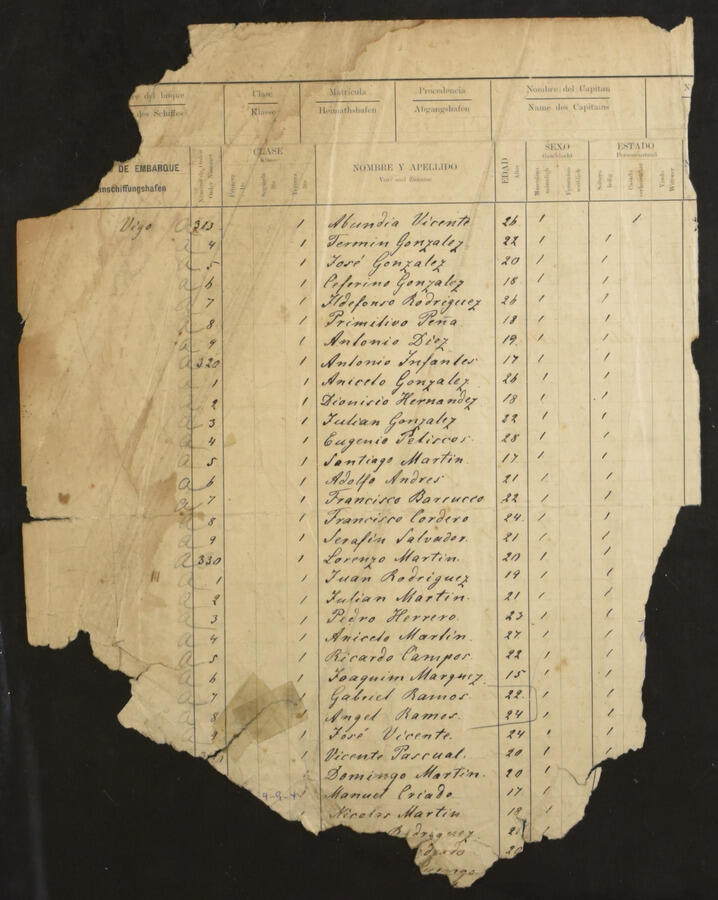 Clase Matricula Procedencia Nombre del Capitan
des Schiffes Klasse Heimathshafen Abgangshafen Name des Capitains
DE EMBARQUE CLASE NOMBRE Y APELLIDO EDAD SEXO ESTADO
Vor- und Zuname Geschlecht
Vigo 313 1 Abundia Vicente 26 1 1
4 1 Fermin Gonzalez 22 1 1
5 1 José Gonzalez 20 1 1
6 1 Ceferino Gonzalez 18 1 1
7 1 Ildefonso Rodriguez 26 1 1
8 1 Primitivo Peña 18 1 1
9 1 Antonio Diez 19 1 1
320 1 Antonio Infantes 17 1 1
1 1 Aniceto Gonzalez 26 1 1
2 1 Dionisio Hernandez 18 1 1
3 1 Julian Gonzalez 22 1 1
4 1 Eugenio Peliscos 28 1 1
5 1 Santiago Martin 17 1 1
6 1 Adolfo Andres 21 1 1
7 1 Francisco Barrueco 22 1 1
8 1 Francisco Cordero 24 1 1
9 1 Serafin Salvador 21 1 1
330 1 Lorenzo Martin 20 1 1
1 1 Juan Rodriguez 19 1 1
2 1 Julian Martin 21 1 1
3 1 Pedro Herrero 23 1 1
4 1 Aniceto Martin 27 1 1
5 1 Ricardo Campos 22 1 1
6 1 Joaquim Marquez 15 1 1
7 1 Gabriel Ramos 22 1 1
8 1 Angel Ramos 24 1 1
9 1 José Vicente 24 1 1
1 Vicente Pascual 20 1 1
1 Domingo Martin 20 1 1
1 Manuel Criado 17 1 1
1 Nicolas Martin 18 1 1
Rodriguez 21 1
20